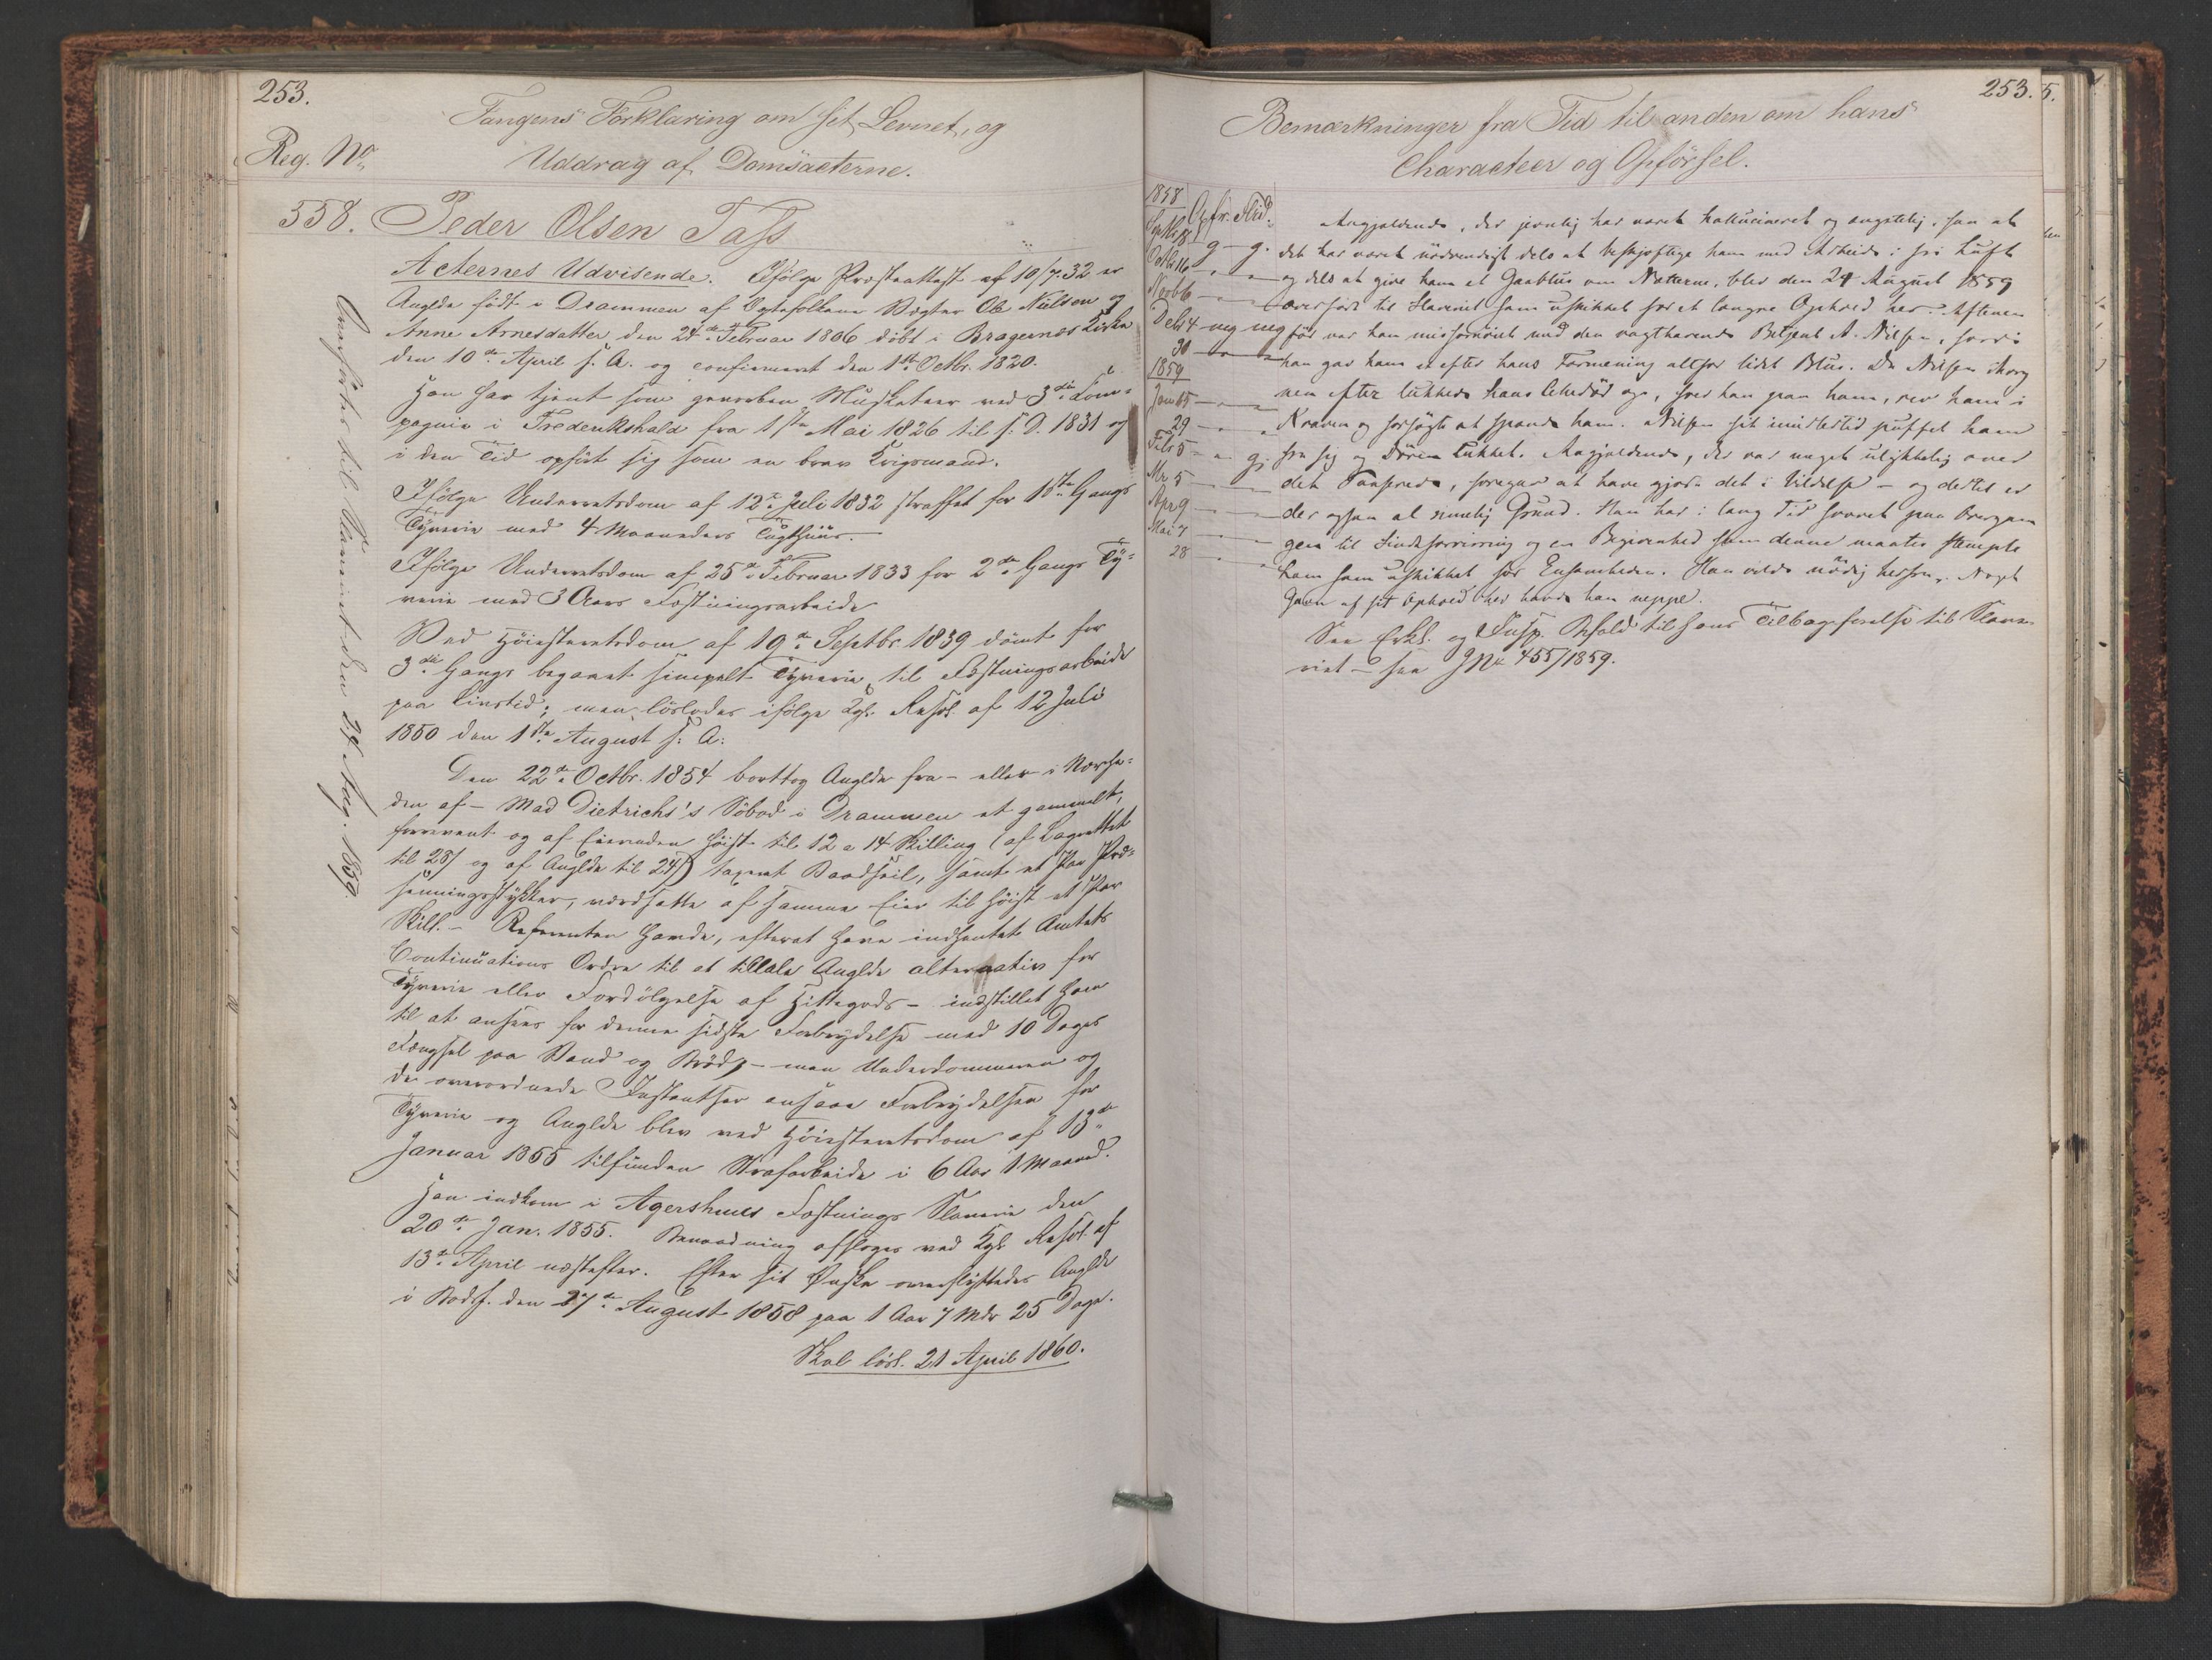 253.
Fangens Forklaring om sit Levnet, og
Reg. No.
Uddrag af Domsacterne.
558. Peder Olsen Tass
Acternes Udvisende. Ifölge Præsteattest af 10/7.32 er
Anglde födt i Drammen af Egtefolkene Vægter Ole Nielsen og
Anne Arnesdatter den 24de Februar 1806 döbt i Bragernæs Kirke
den 10de April s. A. og confirmeret den 1ste Octbr. 1820.
Han har tjent som geworben Musketeer ved 3die Com-
pagnie i Fredrikshald fra 1ste Mai 1826 til s. D. 1831 og
i den Tid opfört sig som en brav Krigsmand.
Ifölge Underretsdom af 12te Juli 1832 straffet for 1ste Gangs
Tyverie med 4 Maaneders Tugthuus.
Ifölge Underretsdom af 25de Februar 1833 for 2den Gangs Ty-
verie med 3 Aars Fæstningsarbeide
Ved Höiesteretsdom af 19de Septbr 1839 dömt for
3die Gangs begaaet simpelt Tyverie til Fæstningsarbeide
paa Livstid; men löslodes ifölge Kgl. Resol. af 12 Juli
1850 den 1ste August s. A.
Den 22de Octbr. 1854 borttog Anglde fra - eller i Nærhe-
den af - Mad Dietrichs's Söbod i Drammen et gammelt,
forrevent og af Eieren höist til 12 a 14 Skilling (af Lagrettet
til 28 / og af Anglde til 24 /) taxeret Baadseil, samt et Par Præ-
senningsstykker, værdsatte af samme Eier til höist et Par
Skill. - Referenten havde, efterat have indhentet Amtets
Continuations Ordre til at tiltale Anglde alternativ for
Tyverie eller Fordölgelse af Hittegods - indstillet ham
til at ansees for denne sidste Forbrydelse med 10 Dages
Fængsel paa Vand og Bröd, - men Underdommeren og
de overordnede Instantser ansaae Forbrydelsen for
Tyverie og Anglde blev ved Höiesteretsdom af 13de
Januar 1855 tilfunden Strafarbeide i 6 Aar 1 Maaned.
Han indkom i Agershuus Fæstnings Slaverie den
20de Jan. 1855. Benaadning afsloges ved Kgl. Resol. af
13de April næstefter. Efter sit Önske overflyttedes Anglde
i Bodsf. den 27de August 1858 paa 1 Aar 7 Mdr 25 Dage.
Skal lösl. 21 April 1860.
Overförtes til Slaveriet den 24 Aug. 1859.
253.
5.
Bemærkninger fra Tid til anden om hans
Characteer og Opförsel.
1858
Opf. Flid.
Septb. 18 g - g.
Octb. 16
Novb 6
Deb. 4 - mg mg
30
1859
Jan 15
29
Feb. 5 - g.
Mr 5
Apr 9
Mai 7
28
Angjældende, der jevnlig har været hallucineret og ængstelig, saa at
det har været nödvendigt dels at beskjæftige ham med Arbeide i fri Luft
og dels at give ham et Gasblus om Nætterne, blev den 24 August 1859
overfört til Slaveriet som uskikket for et længre Ophold her. Aftenen
för var han misfornöiet med den vagthavende Betjent A. Nilsen, fordi
han gav ham et efter hans Formening altfor lidet Blus. Da Nilsen Morg
nen efter lukkede hans op, foer han paa ham, rev ham i
Kraven og forsögte at spænde ham. Nilsen fik imidlertid puffet ham
fra sig og Dören lukket. Angjældende, der var meget ulykkelig over
det Passerede, foregav at have gjort det i Vildelse - og dertil er
der ogsaa al rimelig Grund. Han har i lang Tid svævet paa Overgan
gen til Sindsforvirring og en Begivenhed som denne maatte stemple
ham som uskikket for Ensomheden. Han vilde nödig herfra. Noget
Gavn af sit Ophold her havde han neppe.
See Erkl. og Insp. Forhold til hans Tilbageförelse til Slave-
riet - see JNr 455/1859.